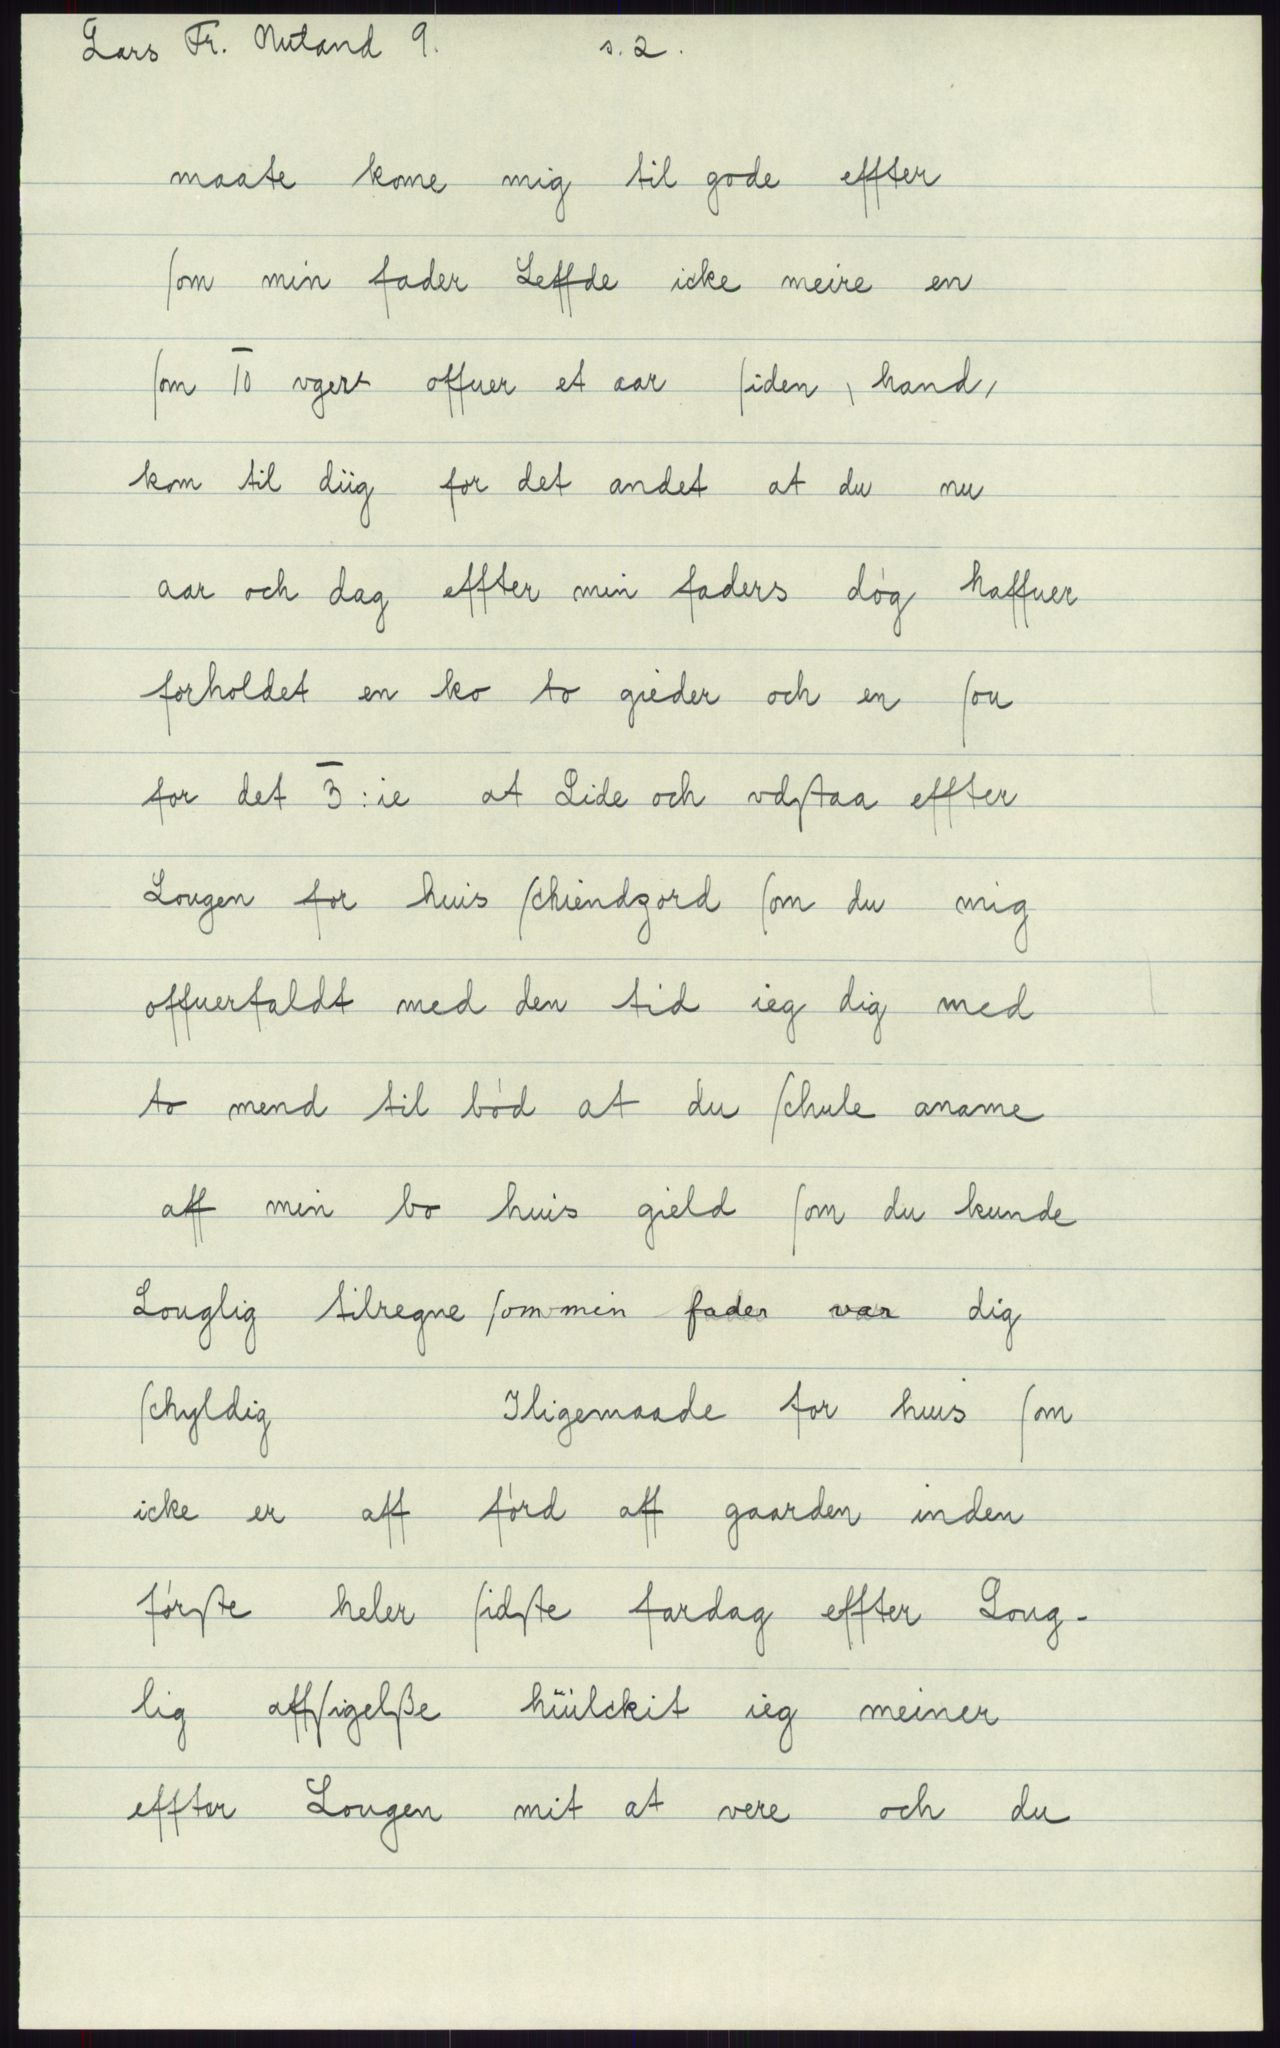 Lars Fr. Nutand 9. s. 2.
maate kome mig til gode effter
ſom min fader Leffde icke meire en
ſom 10 vger offuer et aar ſiden, hand,
kom til diig for det andet at du nu
aar och dag effter min faders døg haffuer
forholdet en ko to gieder och en ſou
for det 3:ie at Lide och vdſtaa effter
Lougen for huis ſchiendzord ſom du mig
offuerfaldt med den tid ieg dig med
to mend til bød at du ſchule aname
aff min bo huis gield ſom du kunde
Louglig tilregne ſom min fader var dig
ſchyldig Iligemaade for huis ſom
icke er aff førd aff gaarden inden
førſte heler ſidſte fardag effter Loug-
lig affſigelße hüilckit ieg meiner
effter Lougen mit at vere och du